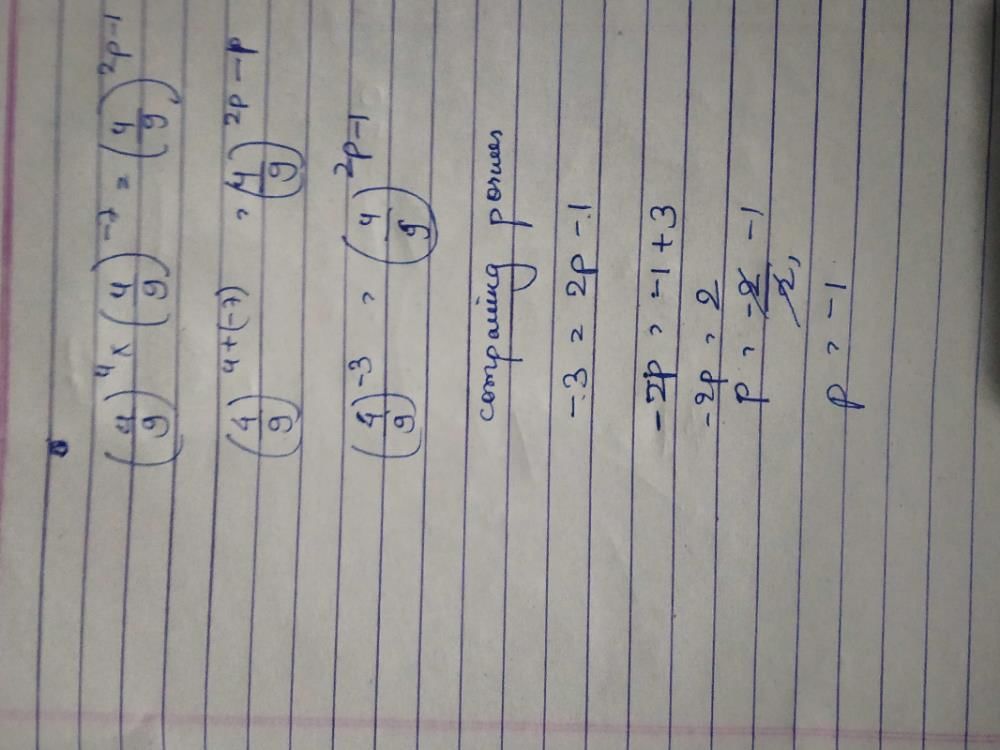 (4/9)^4 × (4/9)^-7 = (4/9)^2p-1
(4/9)^4+(-7) = (4/9)^2p-p
(4/9)^-3 = (4/9)^2p-1
comparing powers
-3 = 2p -1
-2p = -1+3
-2p = 2
p = -2/2 -1
p = -1